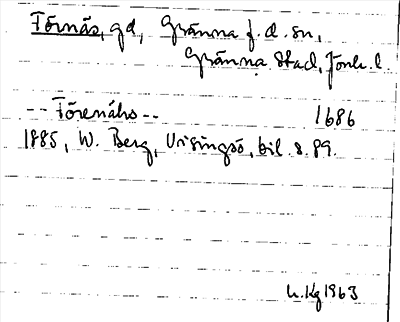 Törnäs, gd, Gränna f.d. sn,
Gränna stad, Jönk. l
-- Törenähs -- 1686
1885, W. Berg, Visingsö, bil. s. 89.
u. Kg 1963